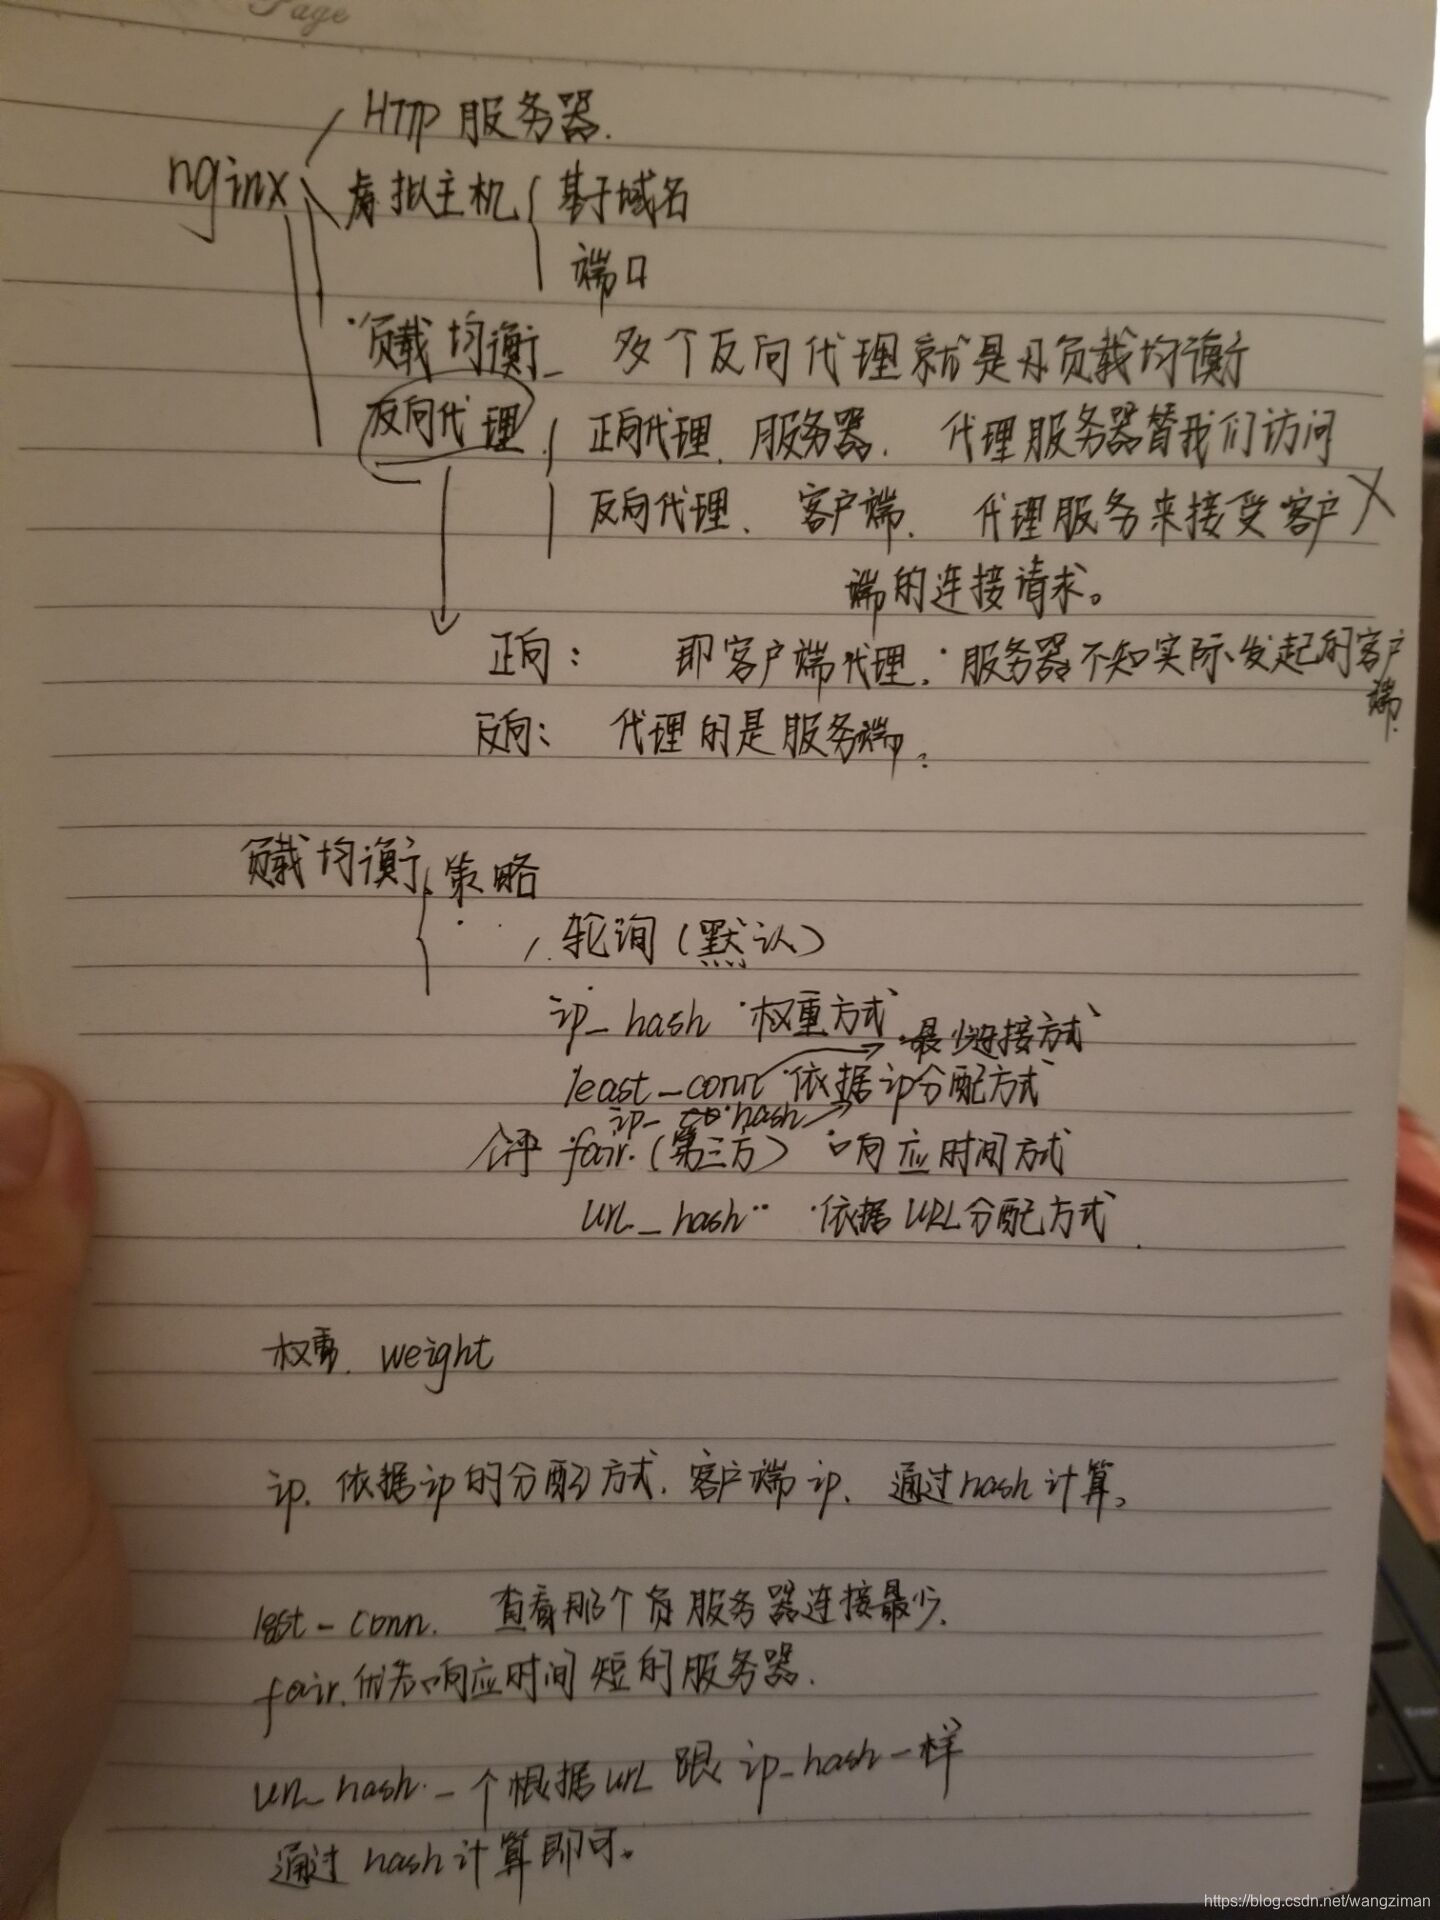 Page
HTTP 服务器.
nginx 虚拟主机 { 基于域名
端口
负载均衡_ 多个反向代理就是负载均衡
反向代理 正向代理、服务器. 代理服务器替我们访问
反向代理、客户端. 代理服务来接受客户 X
端的连接请求。
正向: 即客户端代理. 服务器不知实际发起的客户
端.
反向: 代理的是服务端.
负载均衡 策略
轮询(默认)
ip_hash 权重方式
最少连接方式
least_conn 依据ip分配方式
ip_ hash
公平 fair.(第三方) 响应时间方式
url_hash 依据URL分配方式.
权重. weight
ip. 依据ip的分配方式. 客户端ip、通过hash计算。
least_conn. 查看那个负服务器连接最少.
fair.优先响应时间短的服务器.
url_hash 一个根据url 跟ip_hash一样
通过hash计算即可。
https://blog.csdn.net/wangziman